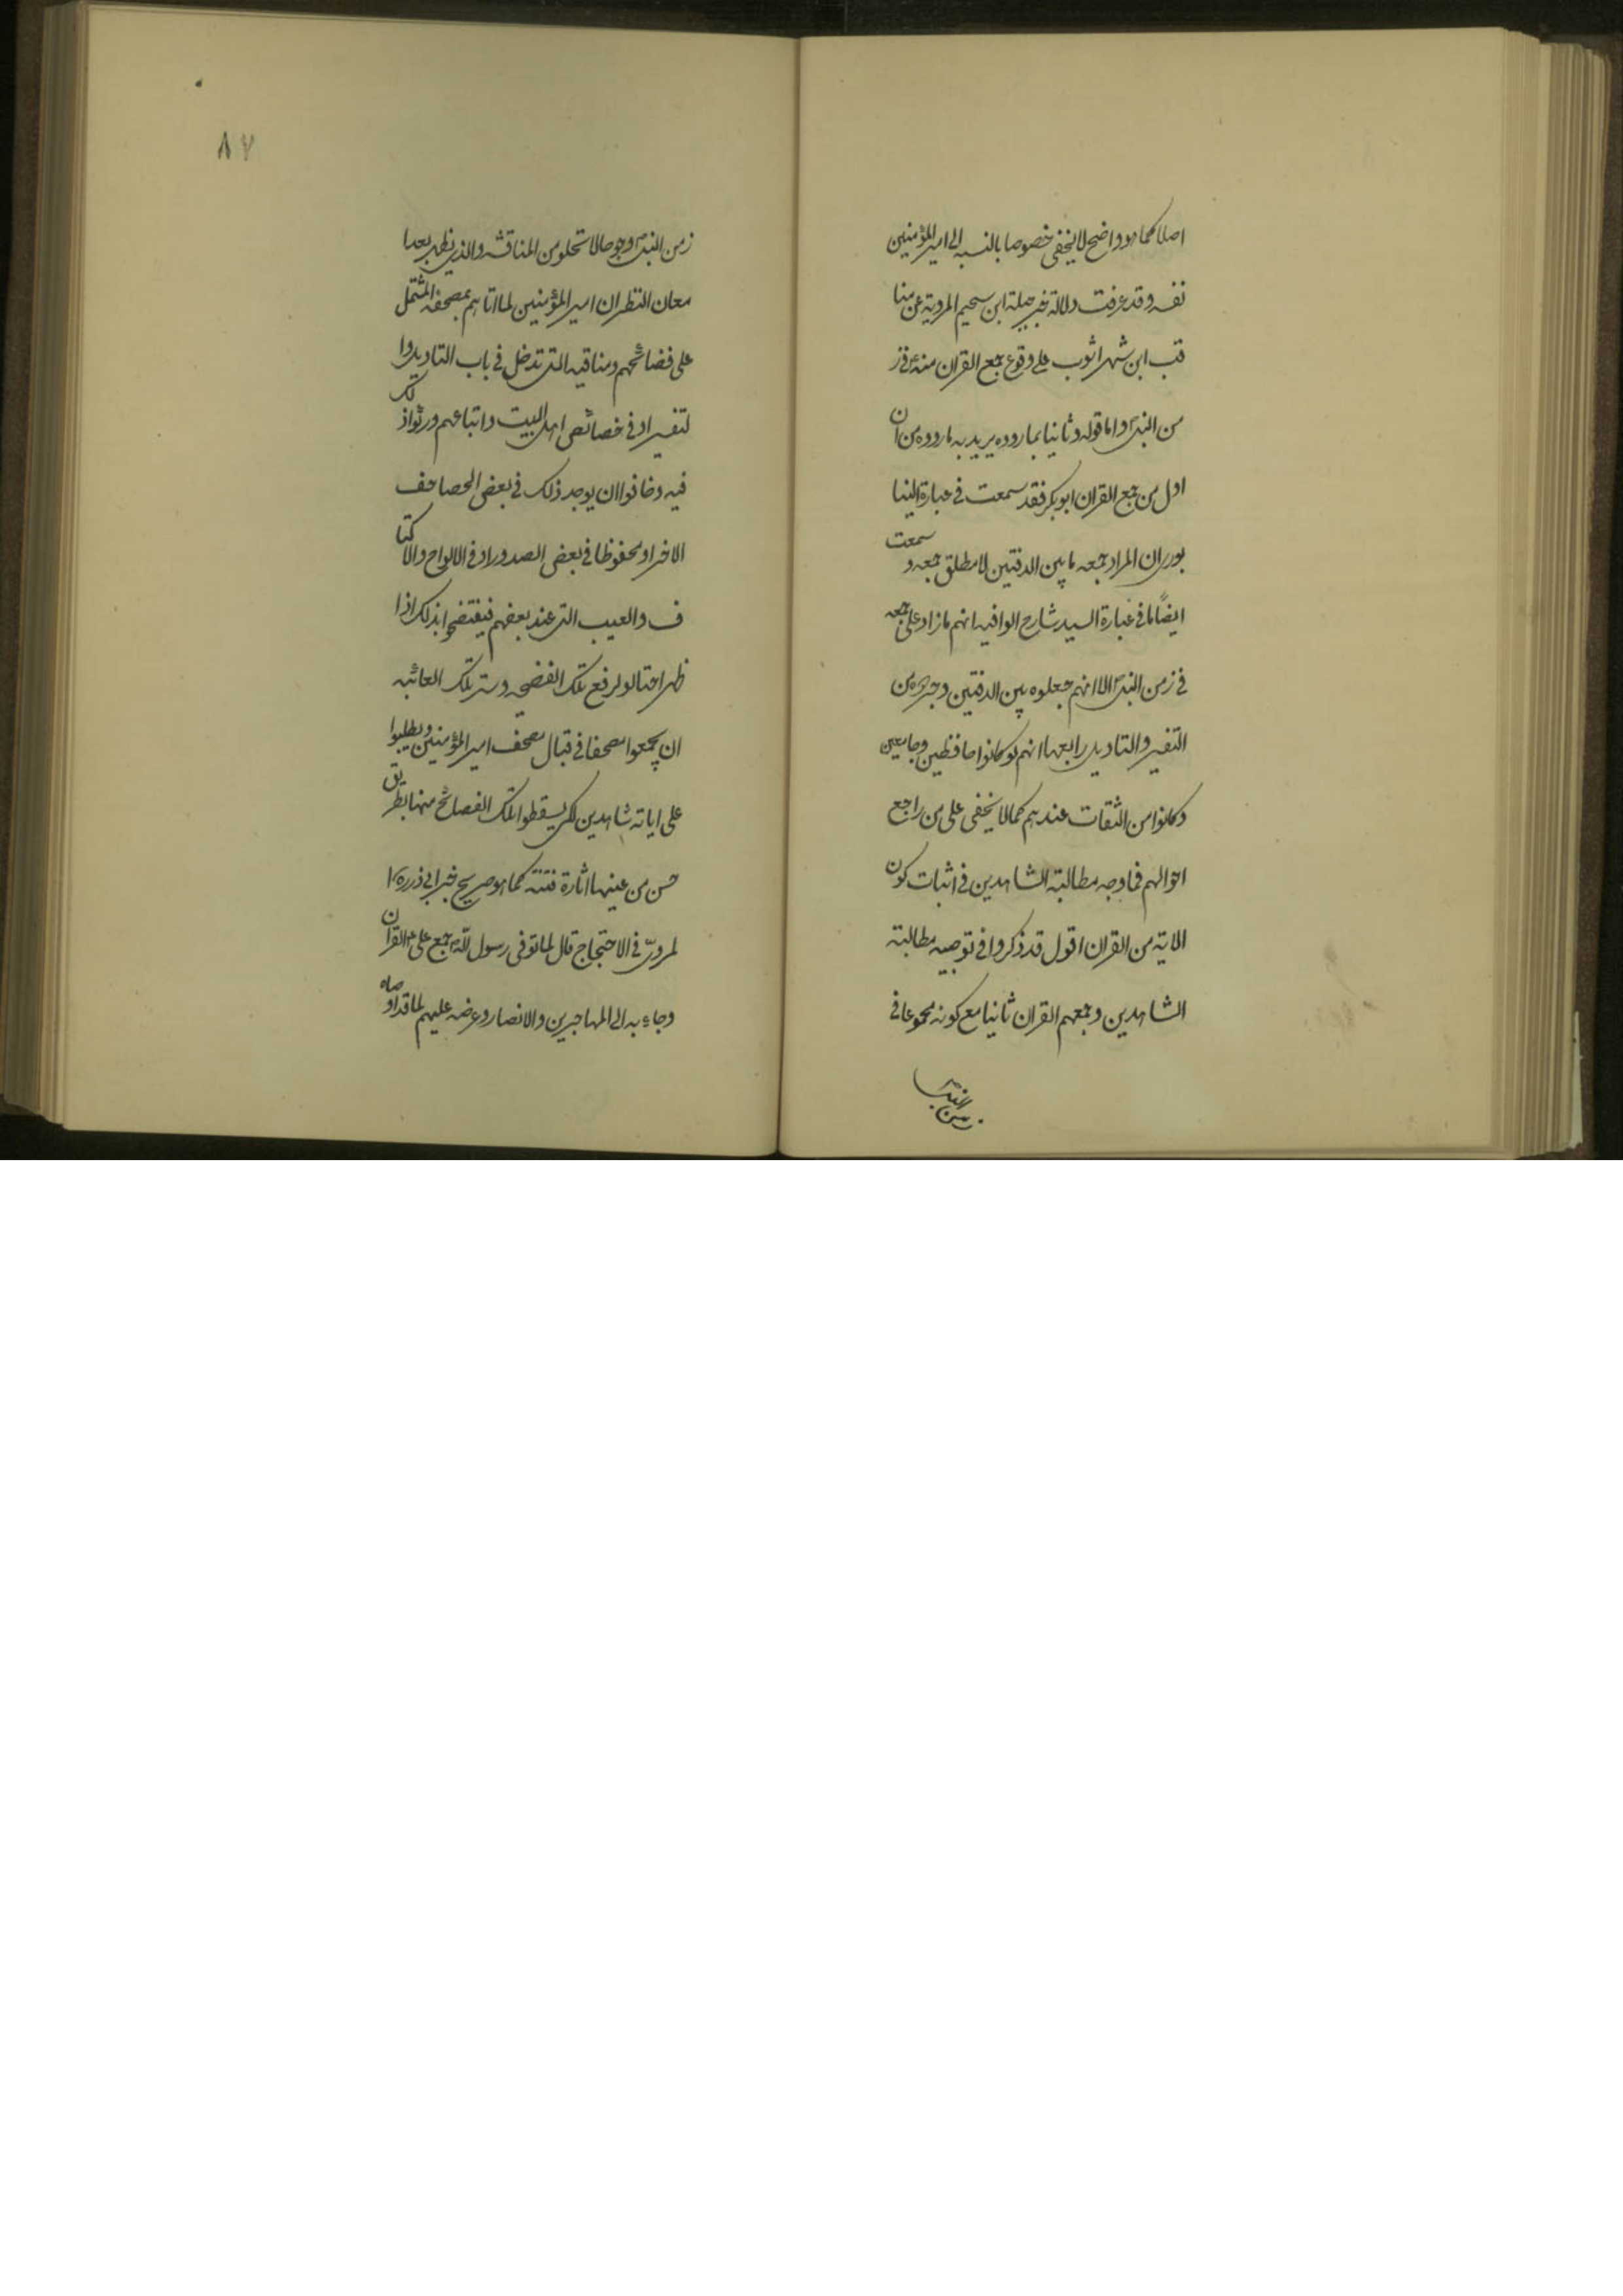 اصلا كما هو واضح لا يخفى خصوصا بالنسبه الى امير المؤمنين
نفسه وقد عرفت دلالة خبر جبلة ابن سحيم المروية عن منا
قب ابن شهر اشوب على وقوع جمع القران منه ع فى ز
من النبى ص واما قوله وثانيا بما رووه يريد به ما رووه من ان
اول من جمع القران ابوبكر فقد سمعت فى عبارة النيسا
بورى ان المراد جمعه ما بين الدفتين لا مطلق جمعه و سمعت
ايضًا ما فى عبارة السيد شارح الوافيه انهم ما زاد على جمعه
فى زمن النبى ص الا انهم جعلوه بين الدفتين وجردوه من
التفسير والتاويل رابعها انهم لو كانوا حافظين وجامعين
وكانوا من الثقات عندهم كما لا يخفى على من راجع
احوالهم فما وجه مطالبة الشاهدين فى اثبات كون
الاية من القران اقول قد ذكروا فى توجيه مطالبة
الشاهدين وجمعهم القران ثانيا مع كونه مجموعا فى
زمن النبى
٨٧
زمن النبى ص وجوها لا تخلو من المناقشه والذى يظهر بعد ا
معان النظر ان امير المؤمنين لما اتاهم بمصحفه المشتمل
على فضائحهم ومناقبه التى تدخل فى باب التاويل وا
لتفسير او فى خصائص اهل البيت واتباعهم ورئوا ذلك
فيه وخافوا ان يوجد ذلك فى بعض المصاحف
الاخر او محفوظا فى بعض الصدور او فى الالواح والاكتا
ف والعيب التى عند بعضهم فيفتضحوا بذلك اذا
ظهر احتالو لرفع تلك الفضيحه وستر تلك العائبه
ان يجمعوا مصحفا فى قبال مصحف امير المؤمنين ويطلبوا
على اياته شاهدين لكى يسقطوا تلك الفضائح منها بطريق
حسن من غير اثارة فتنة كما هو صريح خبر ابى ذر ره ا
لمروىّ فى الاحتجاج قال لما توفى رسول الله ص جمع على ع القران
وجاء به الى المهاجرين والانصار وعرضه عليهم لما قد اوصاه